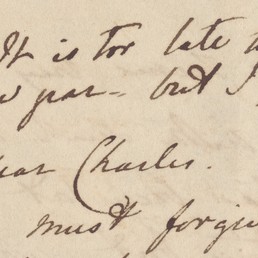 It is too late t
par = but I
ear Charles.
must forgiv